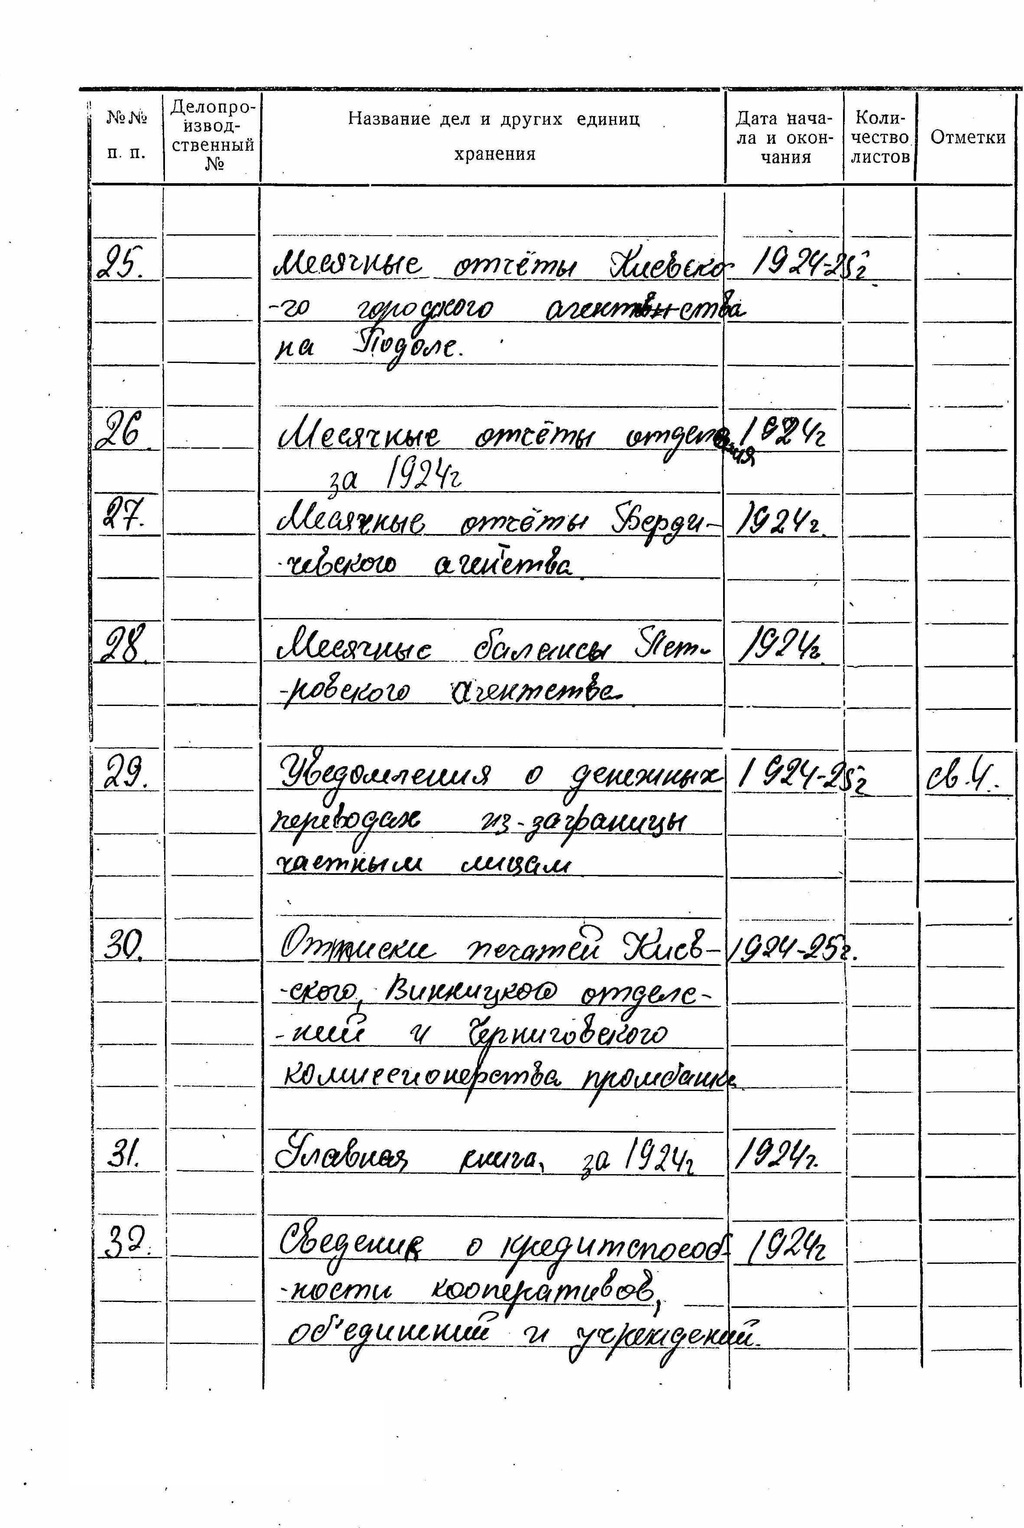 №№ п. п.
Делопроизводственный №
Название дел и других единиц хранения
Дата начала и окончания
Количество листов
Отметки
25. Месячные отчёты Киевско- 1924-25г
-го городского агентства
на Подоле.
26. Месячные отчёты отделения 1924г
за 1924г
27. Месячные отчёты Берди- 1924г.
-чевского агентства
28. Месячные балансы Пет- 1924г.
-ровского агентства
29. Уведомления о денежных 1924-25г св.4.
переводах из-заграницы
частным лицам
30. Оттиски печатей Киев- 1924-25г.
-ского, Винницкого отделе-
-ний и Черниговского
комиссионерства промбанка
31. Главная книга, за 1924г 1924г.
32. Сведения о кредитспособ- 1924г
-ности кооперативов,
об'единений и учреждений.